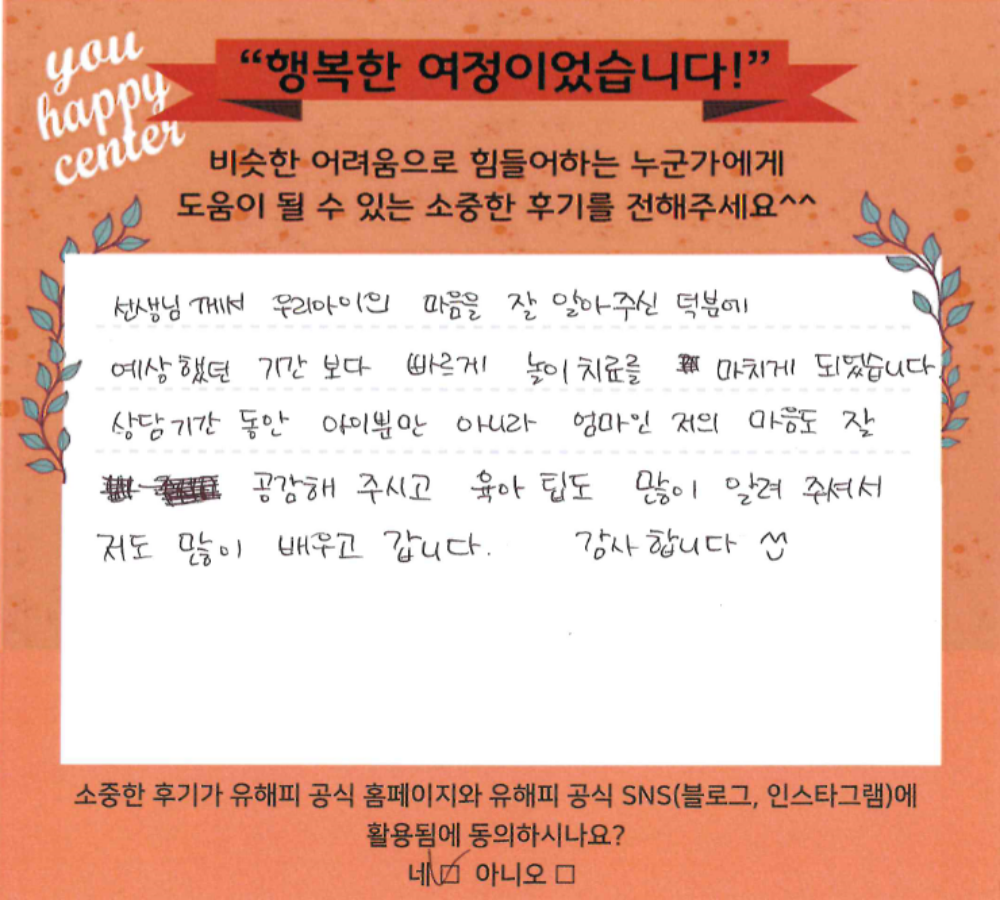 you
happy
center
“행복한 여정이었습니다!”
비슷한 어려움으로 힘들어하는 누군가에게
도움이 될 수 있는 소중한 후기를 전해주세요^^
선생님 께서 우리아이의 마음을 잘 알아주신 덕분에
예상했던 기간 보다 빠르게 놀이치료를 마치게 되었습니다.
상담기간 동안 아이뿐만 아니라 엄마인 저의 마음도 잘
공감해 주시고 육아 팁도 많이 알려 주셔서
저도 많이 배우고 갑니다. 감사합니다
소중한 후기가 유해피 공식 홈페이지와 유해피 공식 SNS(블로그, 인스타그램)에
활용됨에 동의하시나요?
네 ☑ 아니오 □